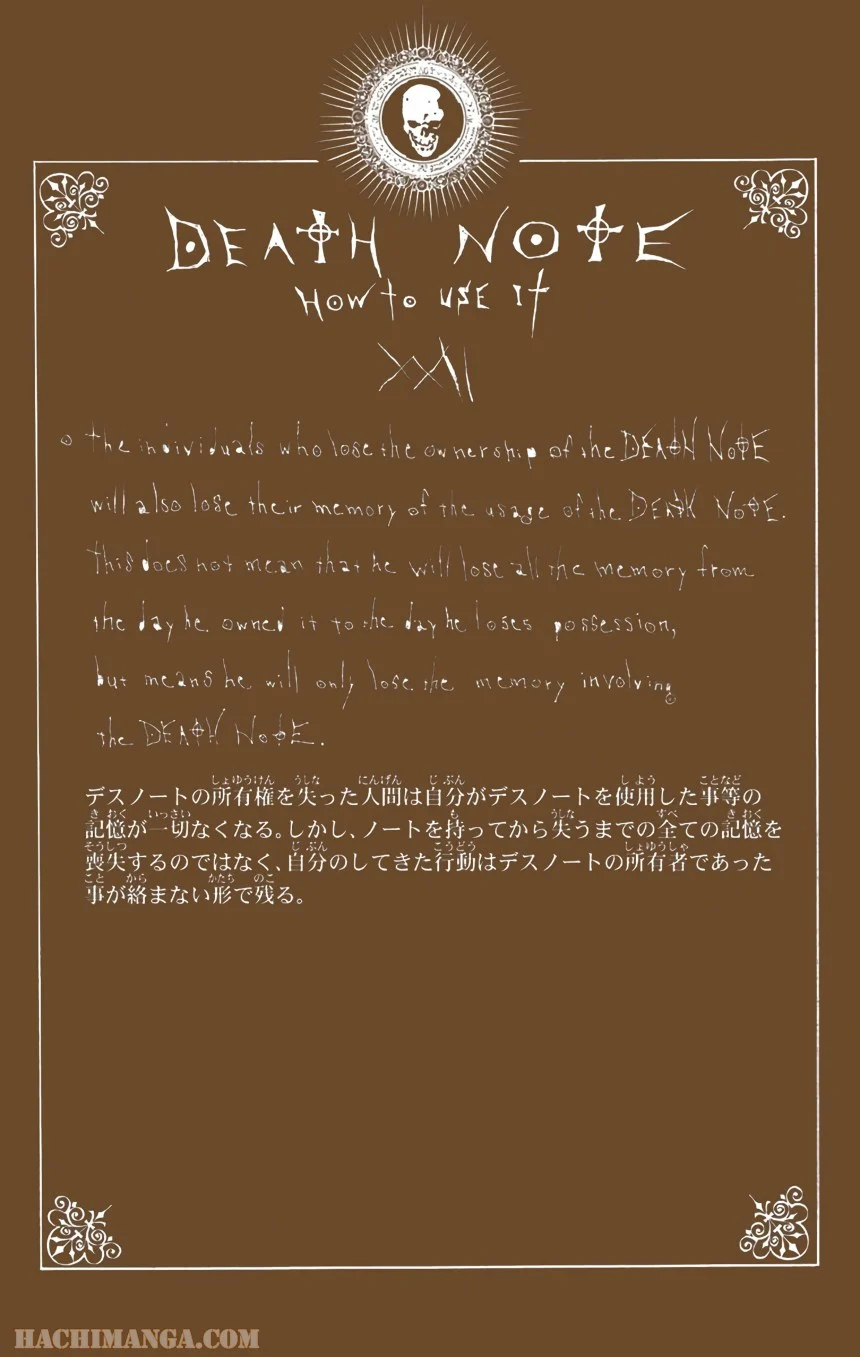 DEATH NOTE
HOW to USE IT
XXII
。 the individuals who lose the ownership of the DEATH NOTE
will also lose their memory of the usage of the DEATH NOTE.
This does not mean that he will lose all the memory from
the day he owned it to the day he loses possession,
but means he will only lose the memory involving
the DEATH NOTE.
デスノートの所有権を失った人間は自分がデスノートを使用した事等の
記憶が一切なくなる。しかし、ノートを持ってから失うまでの全ての記憶を
喪失するのではなく、自分のしてきた行動はデスノートの所有者であった
事が絡まない形で残る。
HACHIMANGA.COM